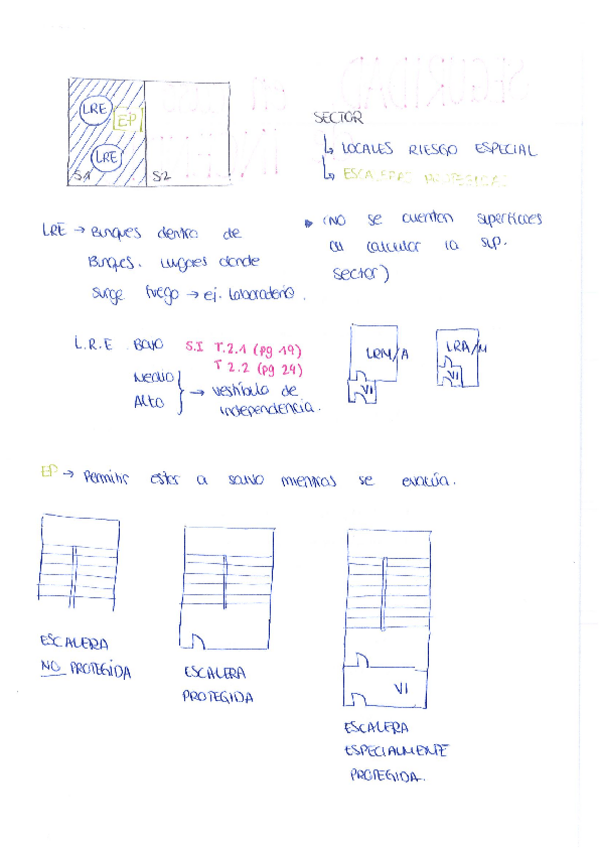 LRE
EP
LRE
S1
S2
SECTOR
↳ LOCALES RIESGO ESPECIAL
↳ ESCALERAS PROTEGIDAS
LRE → Bunques dentro de
Bunques. Lugares donde
surge fuego → ej. laboratorio.
(NO se cuentan superficies
al calcular la sup.
sector)
L.R.E BAJO S.I T.2.1 (pg 19)
T 2.2 (pg 24)
MEDIO
ALTO
→ vestíbulo de
independencia.
LRM/A
VI
LRA/M
VI
EP → Permitir estar a salvo mientras se evacúa.
ESCALERA
NO PROTEGIDA
ESCALERA
PROTEGIDA
VI
ESCALERA
ESPECIALMENTE
PROTEGIDA.